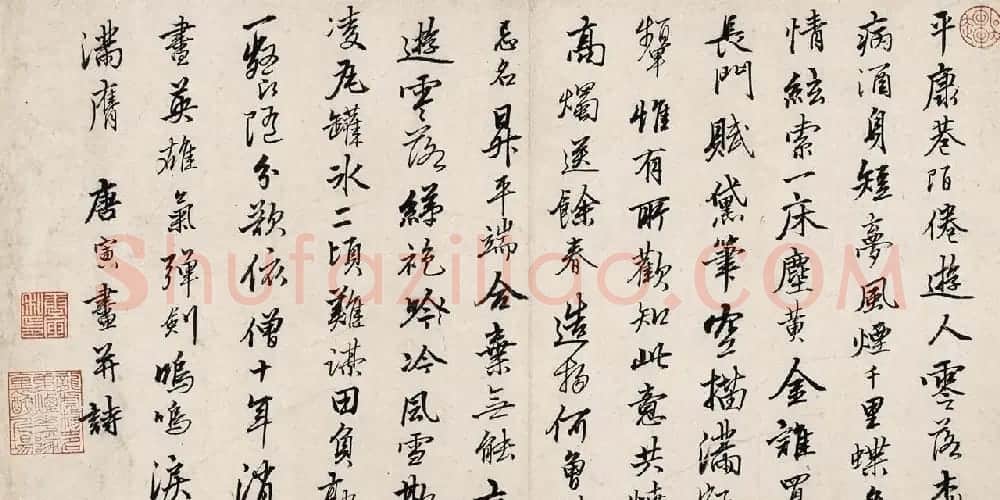 平康巷陌倦遊人零落
病酒身短夢風煙千里蝶
情絃索一床塵黃金誰買
長門賦黛筆空描滿
顰惟有所歡知此意共燒
高燭送餘春 造物何曾
忌名昇平端合棄無能
遊零落綈袍吟冷風雪欺
凌瓦罐冰二頃難謀田負郭
一餐隨分欲依僧十年消
盡英雄氣彈劍嗚嗚淚
滿膺 唐寅畫并詩
Shufaziliao.COM